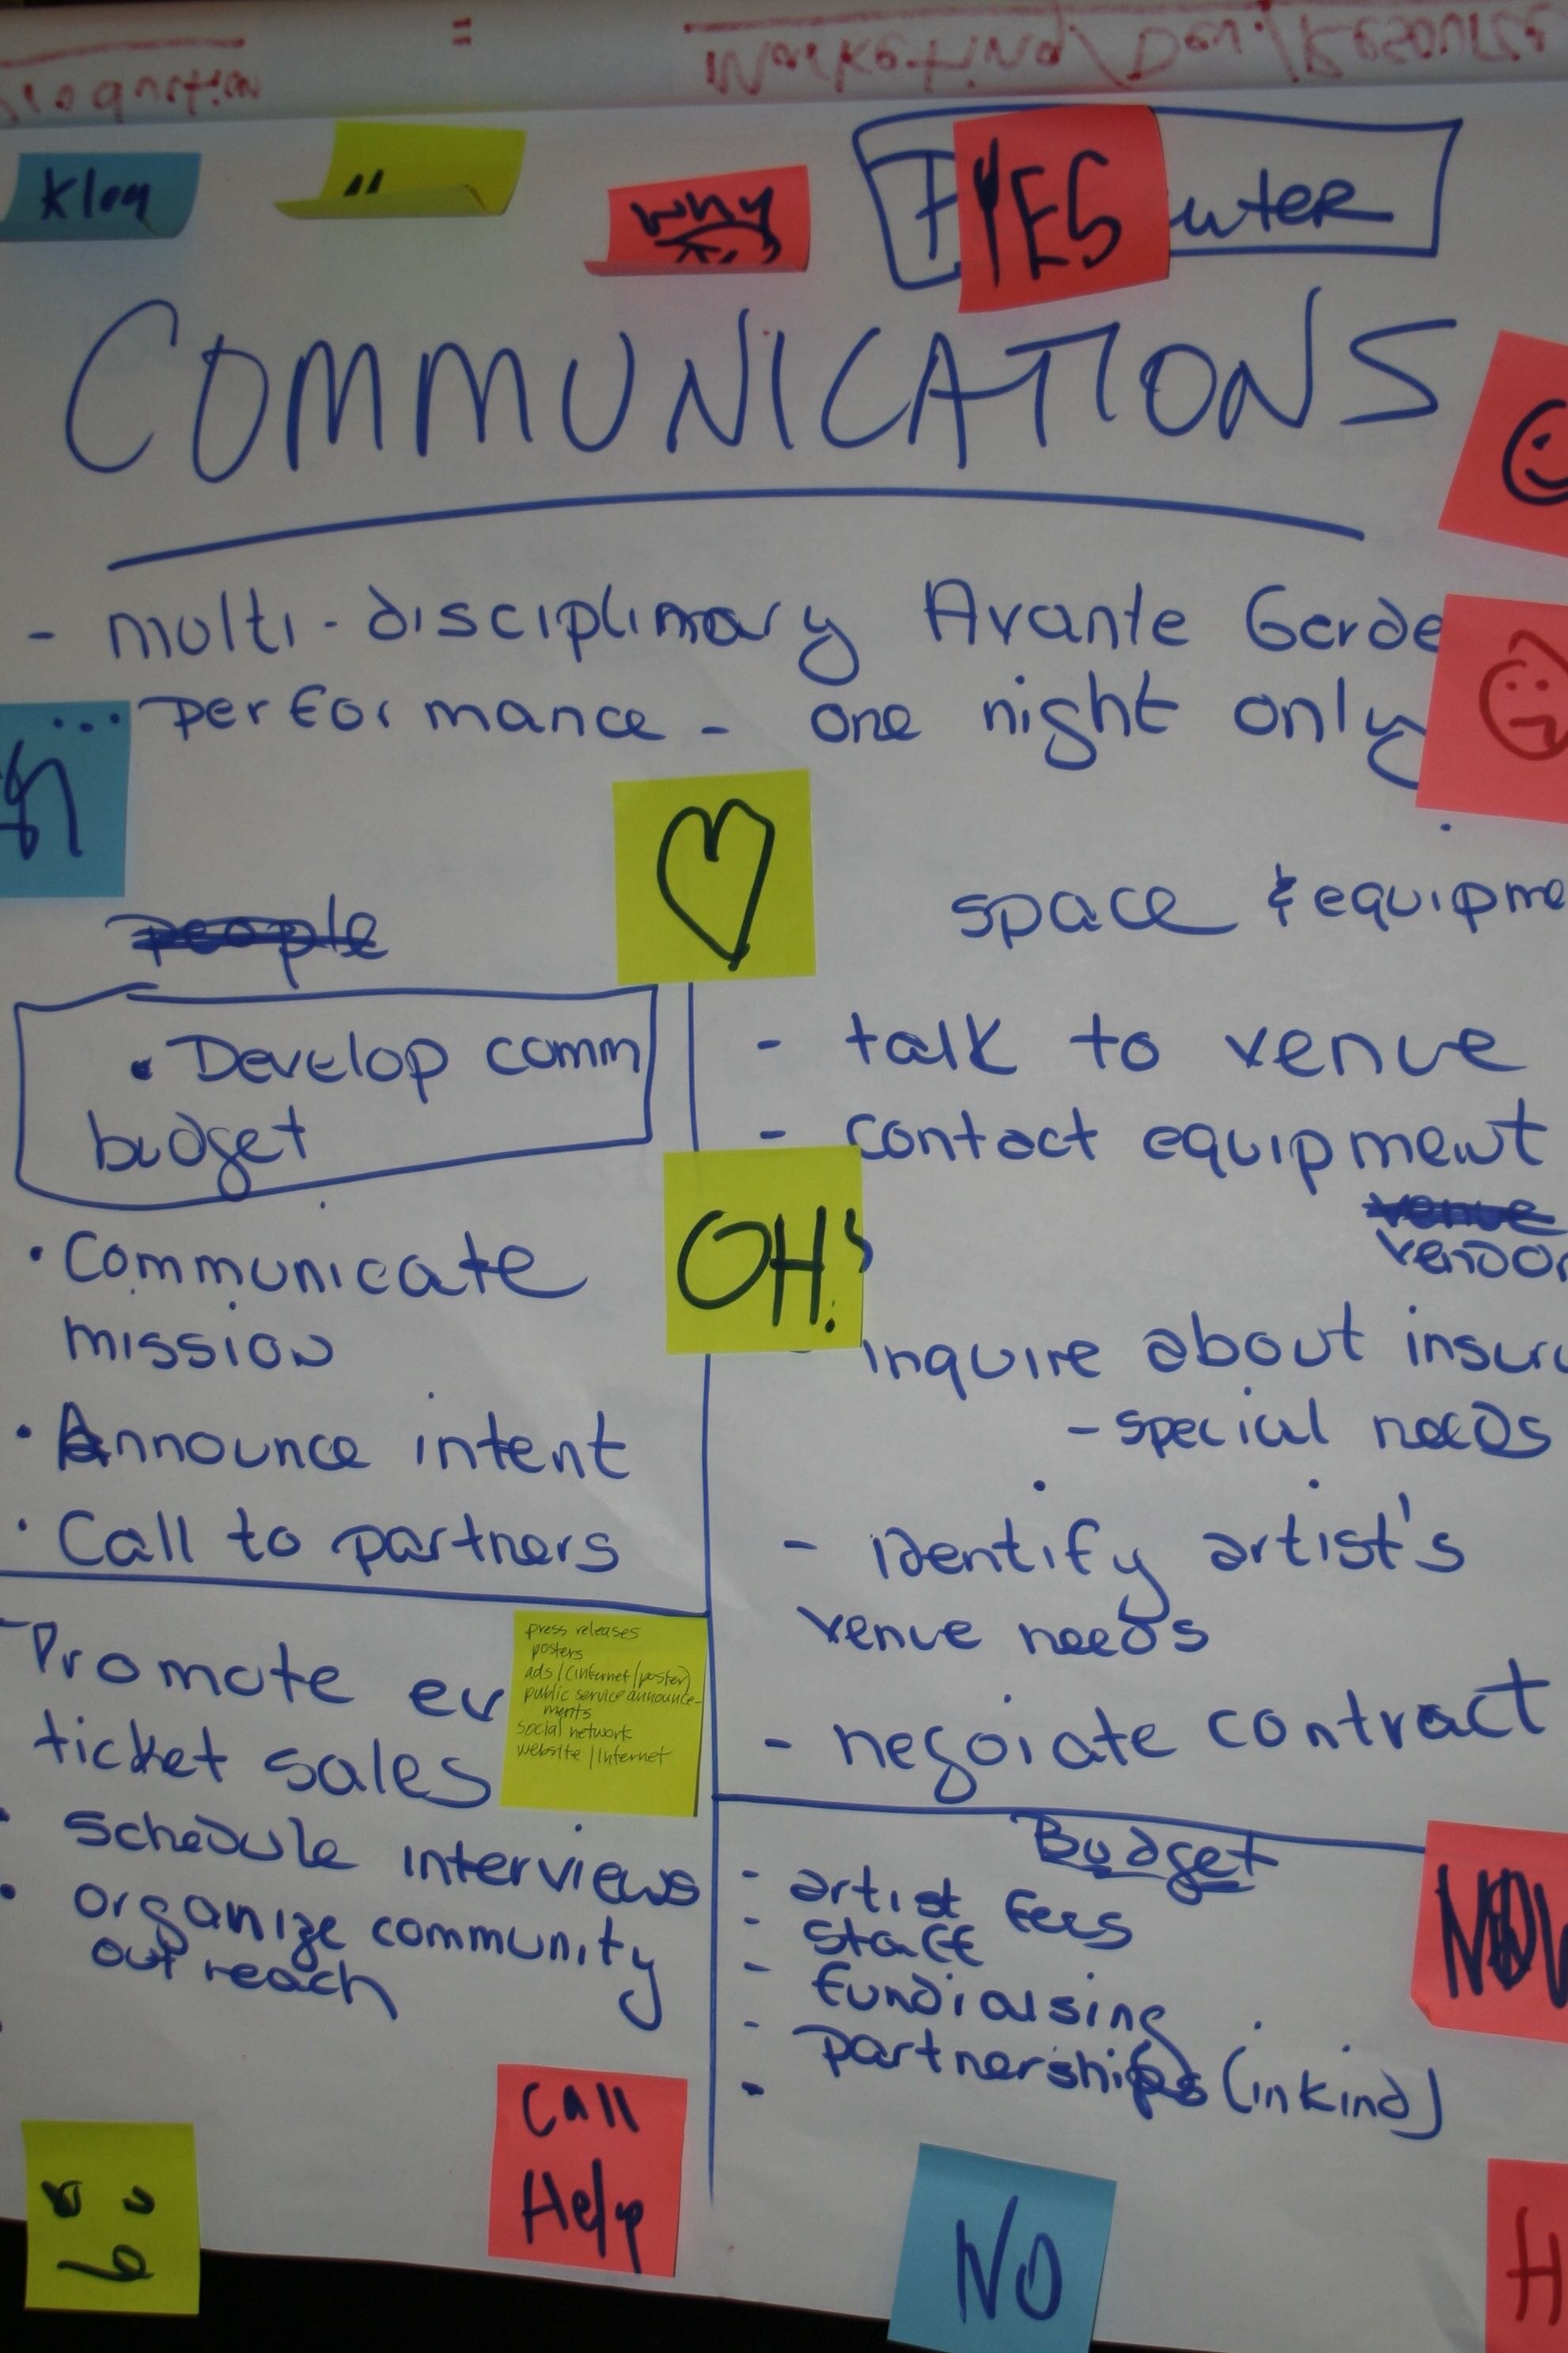 Marketing/Dev./Resource
=
klon
"
why
YES
COMMUNICATIONS
- multi-disciplinary Avante Garde
... performance - one night only
people
• Develop comm
budget
• Communicate
mission
• Announce intent
• Call to partners
Promote ev
ticket sales
press releases
posters
ads/(internet/poster)
public service announce-
ments
social network
website/Internet
• schedule interviews
• organize community
outreach
space & equipme
- talk to venue
- contact equipment
venue
vendor
OH!
- inquire about insur
- special needs
- identify artist's
venue needs
- negoiate contract
Budget
- artist fees
- staff
- fundiaising
- partnerships (inkind)
-
NOW
Call
Help
NO
H